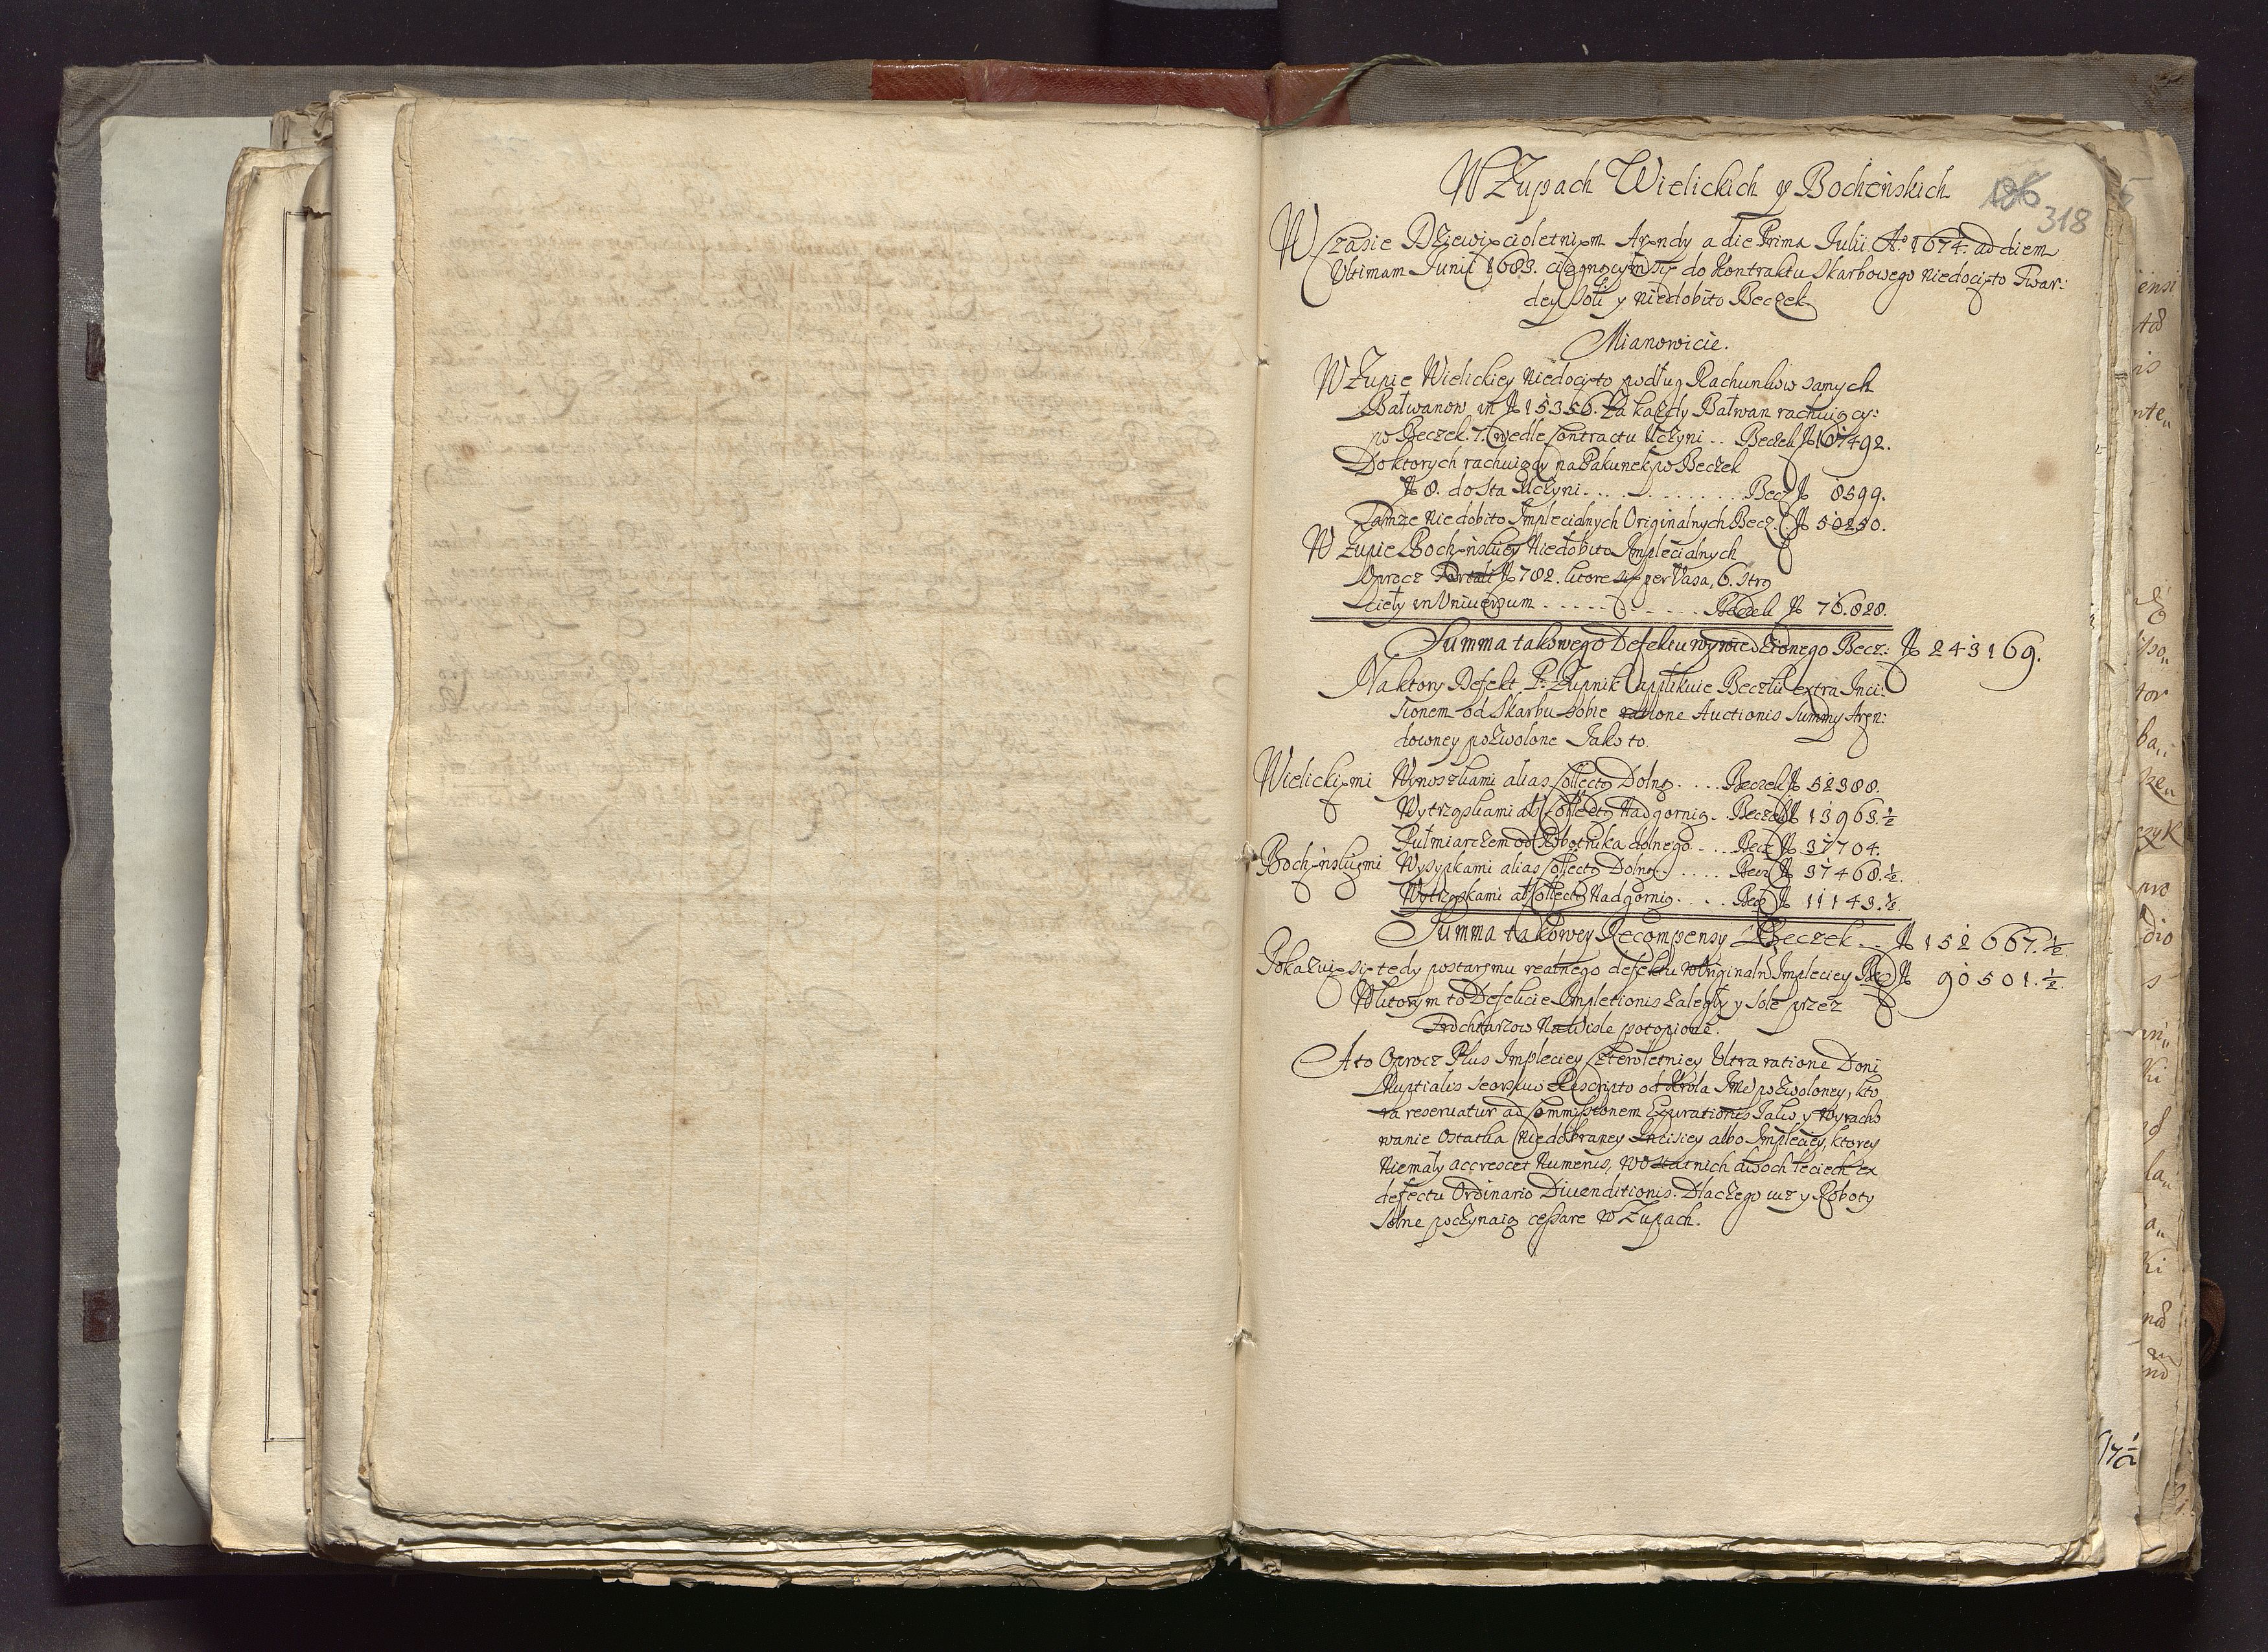 W Zupach Wielickich y Bocheńskich
318
W Czasie Dziewięcioletniem Arendy a die Prima Julii Aº 1674. ad diem
Ultimam Junii 1683. ciągnącym się do Kontraktu Skarbowego niedocięto Twar:
dey Soli y niedobito Beczek
Mianowicie.
W Zupie Wielickiey Niedocięto podług Rachunkow samych
Bałwanow in Nº 15356. Za kazdy Bałwan rachuiąc y:
po Beczek. 7. wedle Contractu Uczyni .. Beczek Nº 107492.
Do ktorych rachuiąc na Pakunek po Beczek
Nº 8. do sta Uczyni. . . . . . . . . . . . Becz Nº 8599.
Tamze Niedobito Implecialnych Originalnych Becz. Nº 50250.
W Zupie Bocheńskiey Niedobito Implecialnych
Oprocz Nº 782. ktore się per Vasa, 6. stro
cieły in Universum . . . . . . . . . . . Beczek Nº 76.828.
Summa takowego Defektu wywiedzionego Becz: Nº 243169.
Na ktory Defekt P. Zupnik applikuie Beczki extra Inci:
sionem od Skarbu sobie ratione Auctionis Summy Aren:
downey pozwolone Jako to.
Wielickiemi Wynoszkami alias Collectą Dolną. . . . Beczek Nº 52388.
Wytrząskami als Collectą Nadgornią. . Beczek Nº 13963.½
Pułmiarczem od Robotnika dolnego. . . . Becz Nº 37704.
Bocheńskiemi Wysypkami alias Collectą Dolną. . . . . . Becz Nº 37468.½.
Wytrząskami als Collectą Nadgornią. . . . . Becz Nº 11143.½.
Summa takowey Recompensy Beczek... Nº 152667.½.
Pokazuie się tedy postaremu realnego defektu w Originalney Impleciey Becz Nº 90501.½.
W ktorym to Defekcie Impletionis zaległy y Sole przez
Frochtarzow Na Wisle potopione.
A to Oprocz Plus Impleciey Czteroletniey Ultra ratione Doni
Nuptialis seorsivo Rescripto od Krola JMci pozwoloney, kto
ra reservatur ad Commissionem Expurationis Jako y Wyracho
wanie Ostatka Niedobraney Incisiey albo Impleciey, ktorey
Niemały accrescet Numerus, w ostatnich dwoch leciech ex
defectu Ordinario Divenditionis. Dlaczego iuz y Roboty
Solne poczynaią cessare w Zupach.